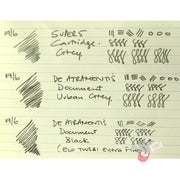 19/6 SUPER5
Cartridge.
Grey
19/6 DE ATRAMENTIS
Document
Urban Grey
19/6 DE ATRAMENTIS
Document
Black
(ECO TWSBI Extra Fine)